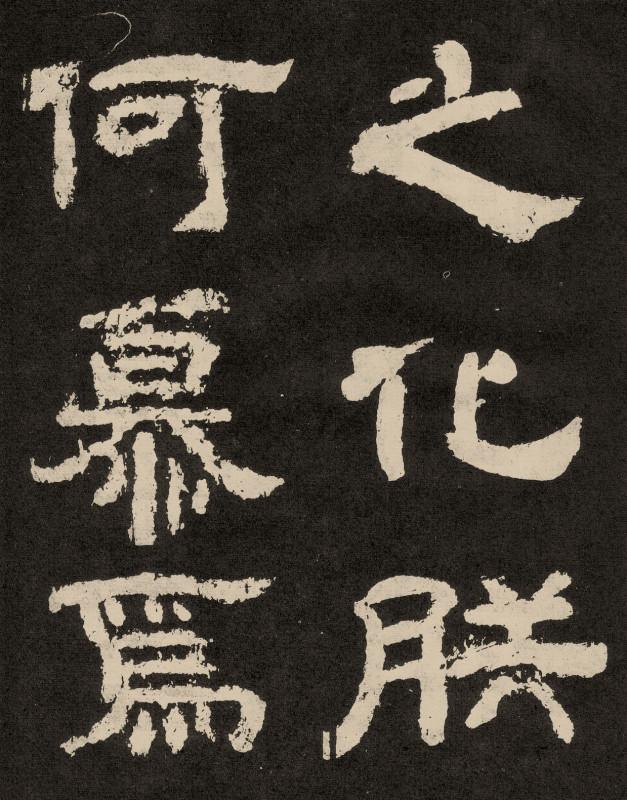 之化朕
何慕焉